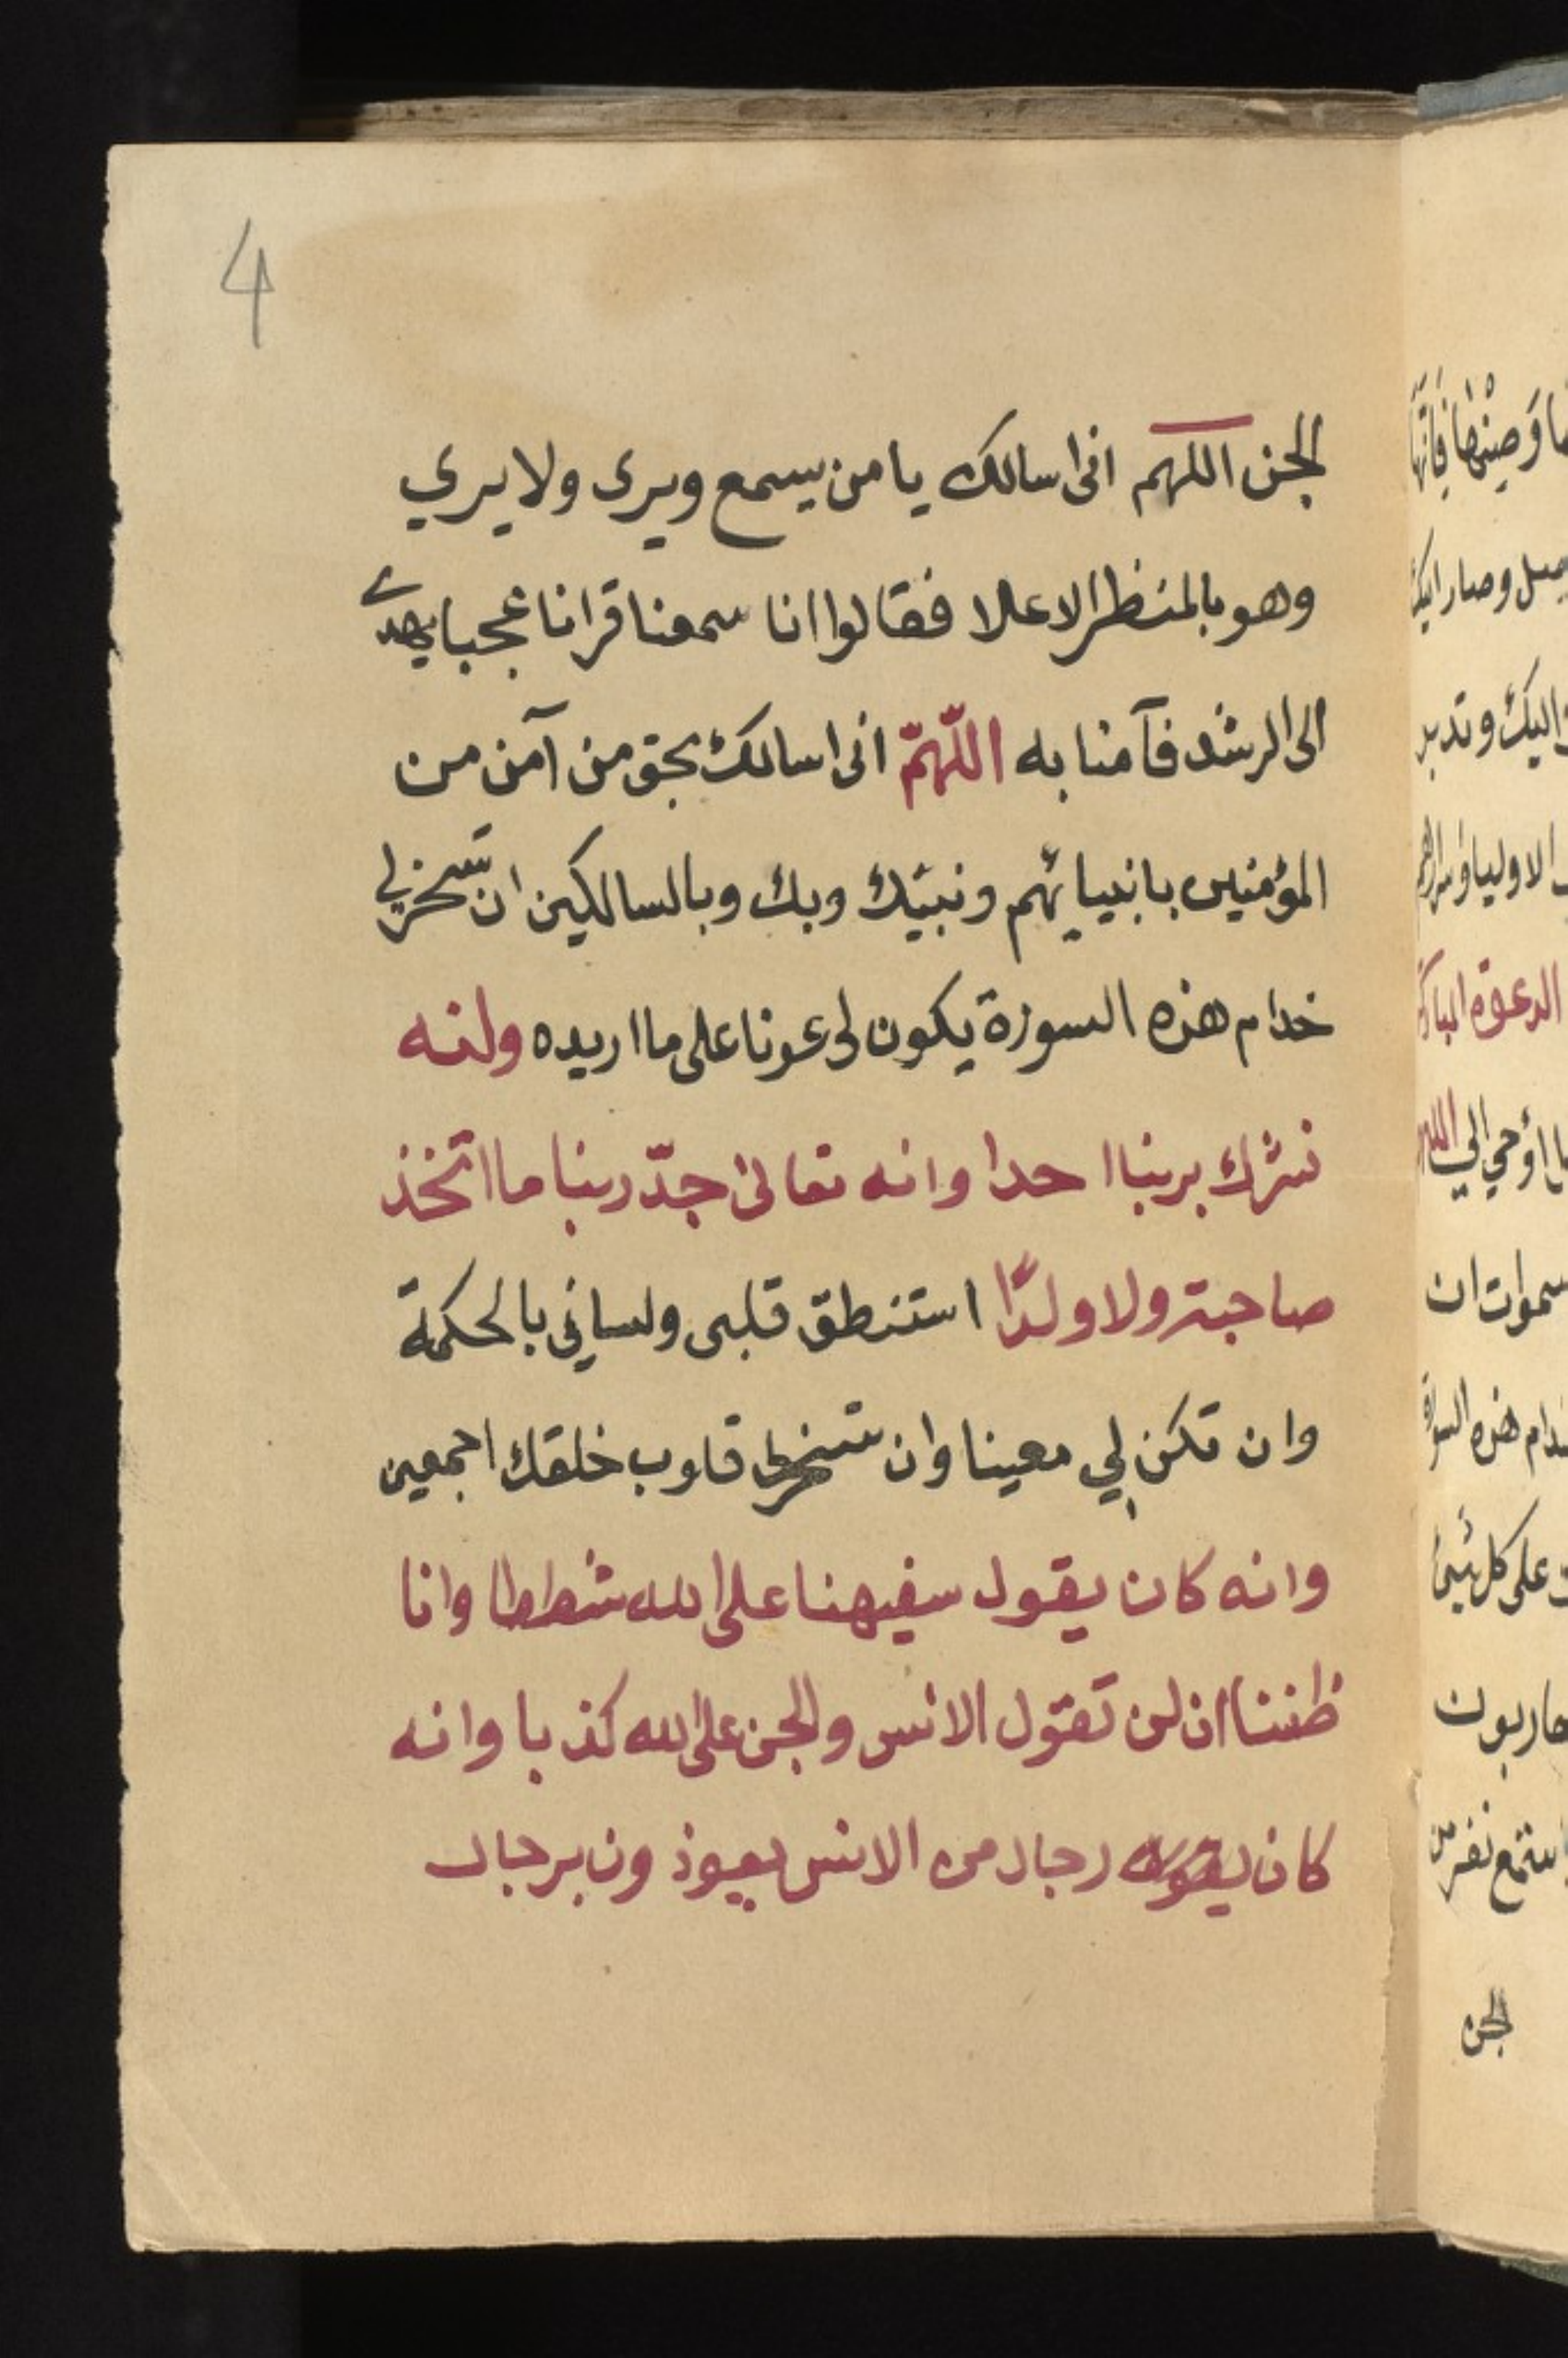 4
الجن اللهم انى اسالك يا من يسمع ويرى ولا يري
وهو بالمنظر الاعلا فقالوا انا سمعنا قرانا عجبا يهدى
الى الرشد فآمنا به اللّهمّ انى اسالك بحق من آمن من
المؤمنين بانبيائهم ونبيّك وبك وبالسالكين ان تسخر لي
خدام هذه السورة يكون لى عونا على ما اريده ولنه
نشرك بربنا احدا وانه تعالىٰ جدّ ربنا ما اتخذ
صاحبة ولا ولدًا استنطق قلبى ولساني بالحكمة
وان تكن لي معينا وان تسخر لى قلوب خلقك اجمعين
وانه كان يقول سفيهنا على الله شططا وانا
ظننا ان لن تقول الانس والجن على الله كذبا وانه
كان رجال من الانس يعوذون برجال
وصار اليك
اليك وتدبر
الدعوة المباركة
اوحي الي
سموات ان
هذه السورة
على كل شيئ
استمع نفر من
الجن